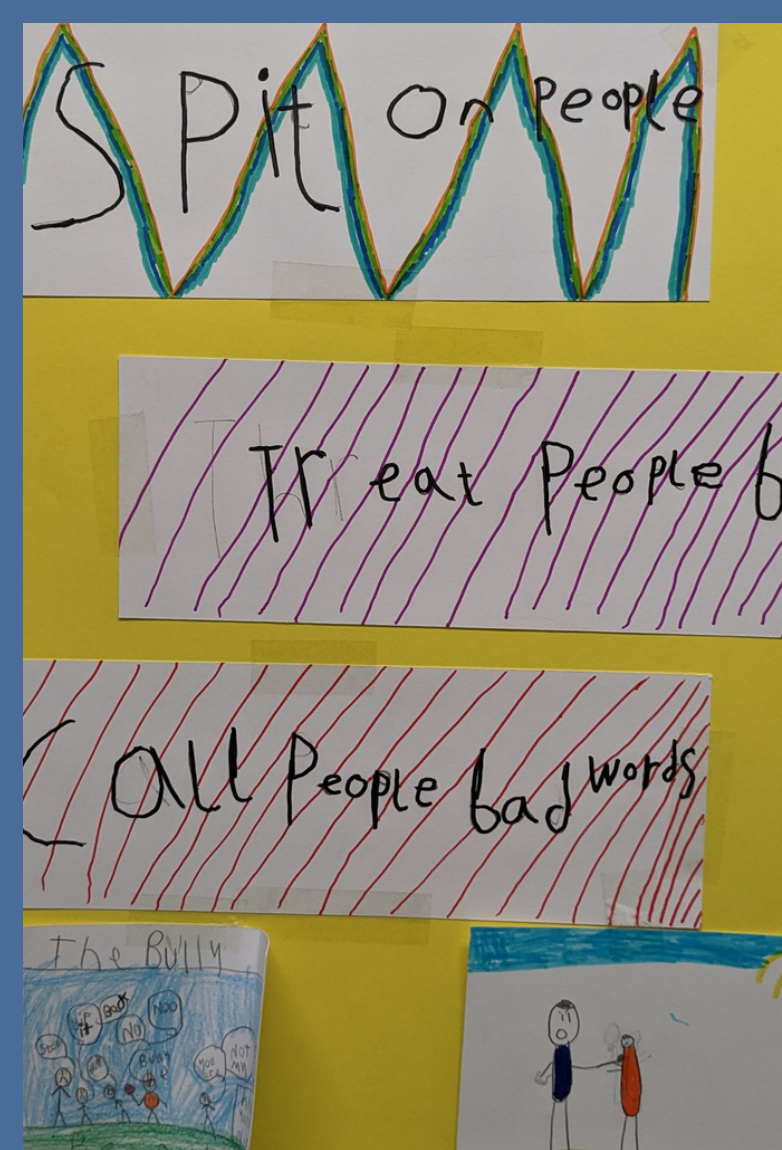 Spit on People
Treat People b
Call People bad words
The Bully
Stop
if it
Back
NO
NOO
Bully
you are
NOT